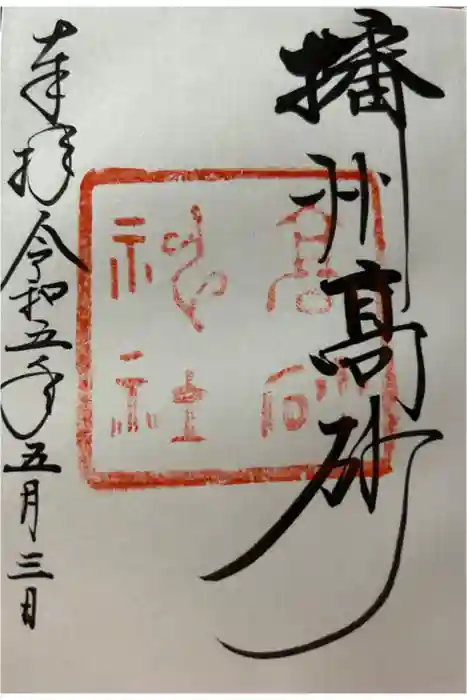 播州髙砂
髙砂
神社
奉拝令和五年五月三日